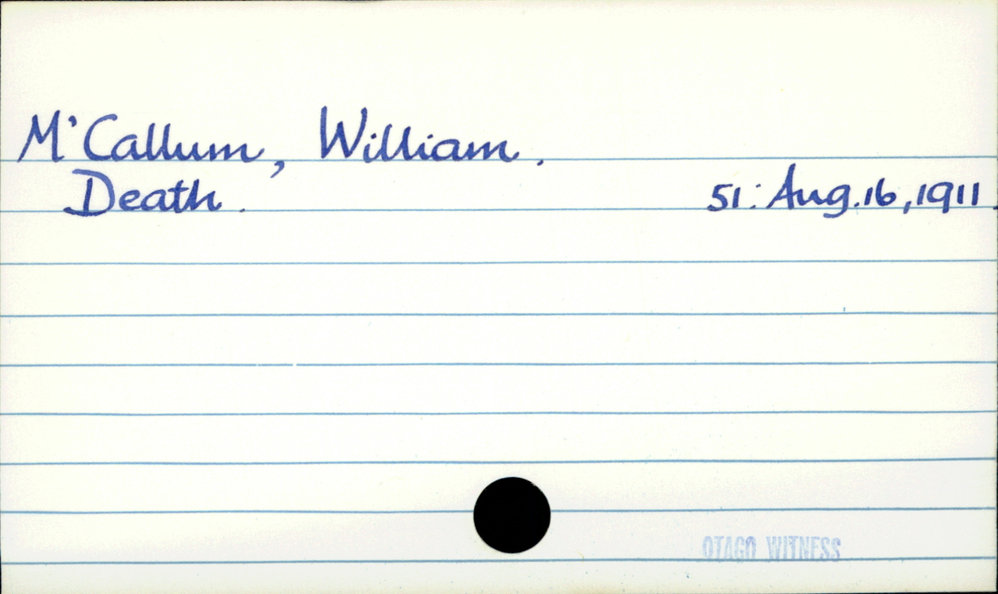 M'Callum, William.
Death. 51: Aug. 16, 1911.
OTAGO WITNESS